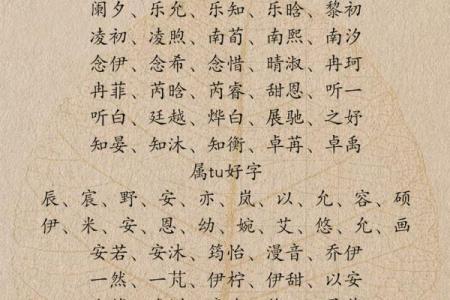 阑夕、乐允、乐知、乐晗、黎初
凌初、凌煦、南荀、南熙、南汐
念伊、念希、念惜、晴淑、冉珂
冉菲、芮晗、芮睿、甜恩、听一
听白、廷越、烨白、展驰、之妤
知晏、知沐、知衡、卓苒、卓禹
属tu好字
辰、宸、野、安、亦、岚、以、允、容、硕
伊、米、安、恩、幼、婉、艾、悠、允、画
安若、安沐、筠怡、漫音、乔伊
一然、一芃、伊柠、伊甜、以安